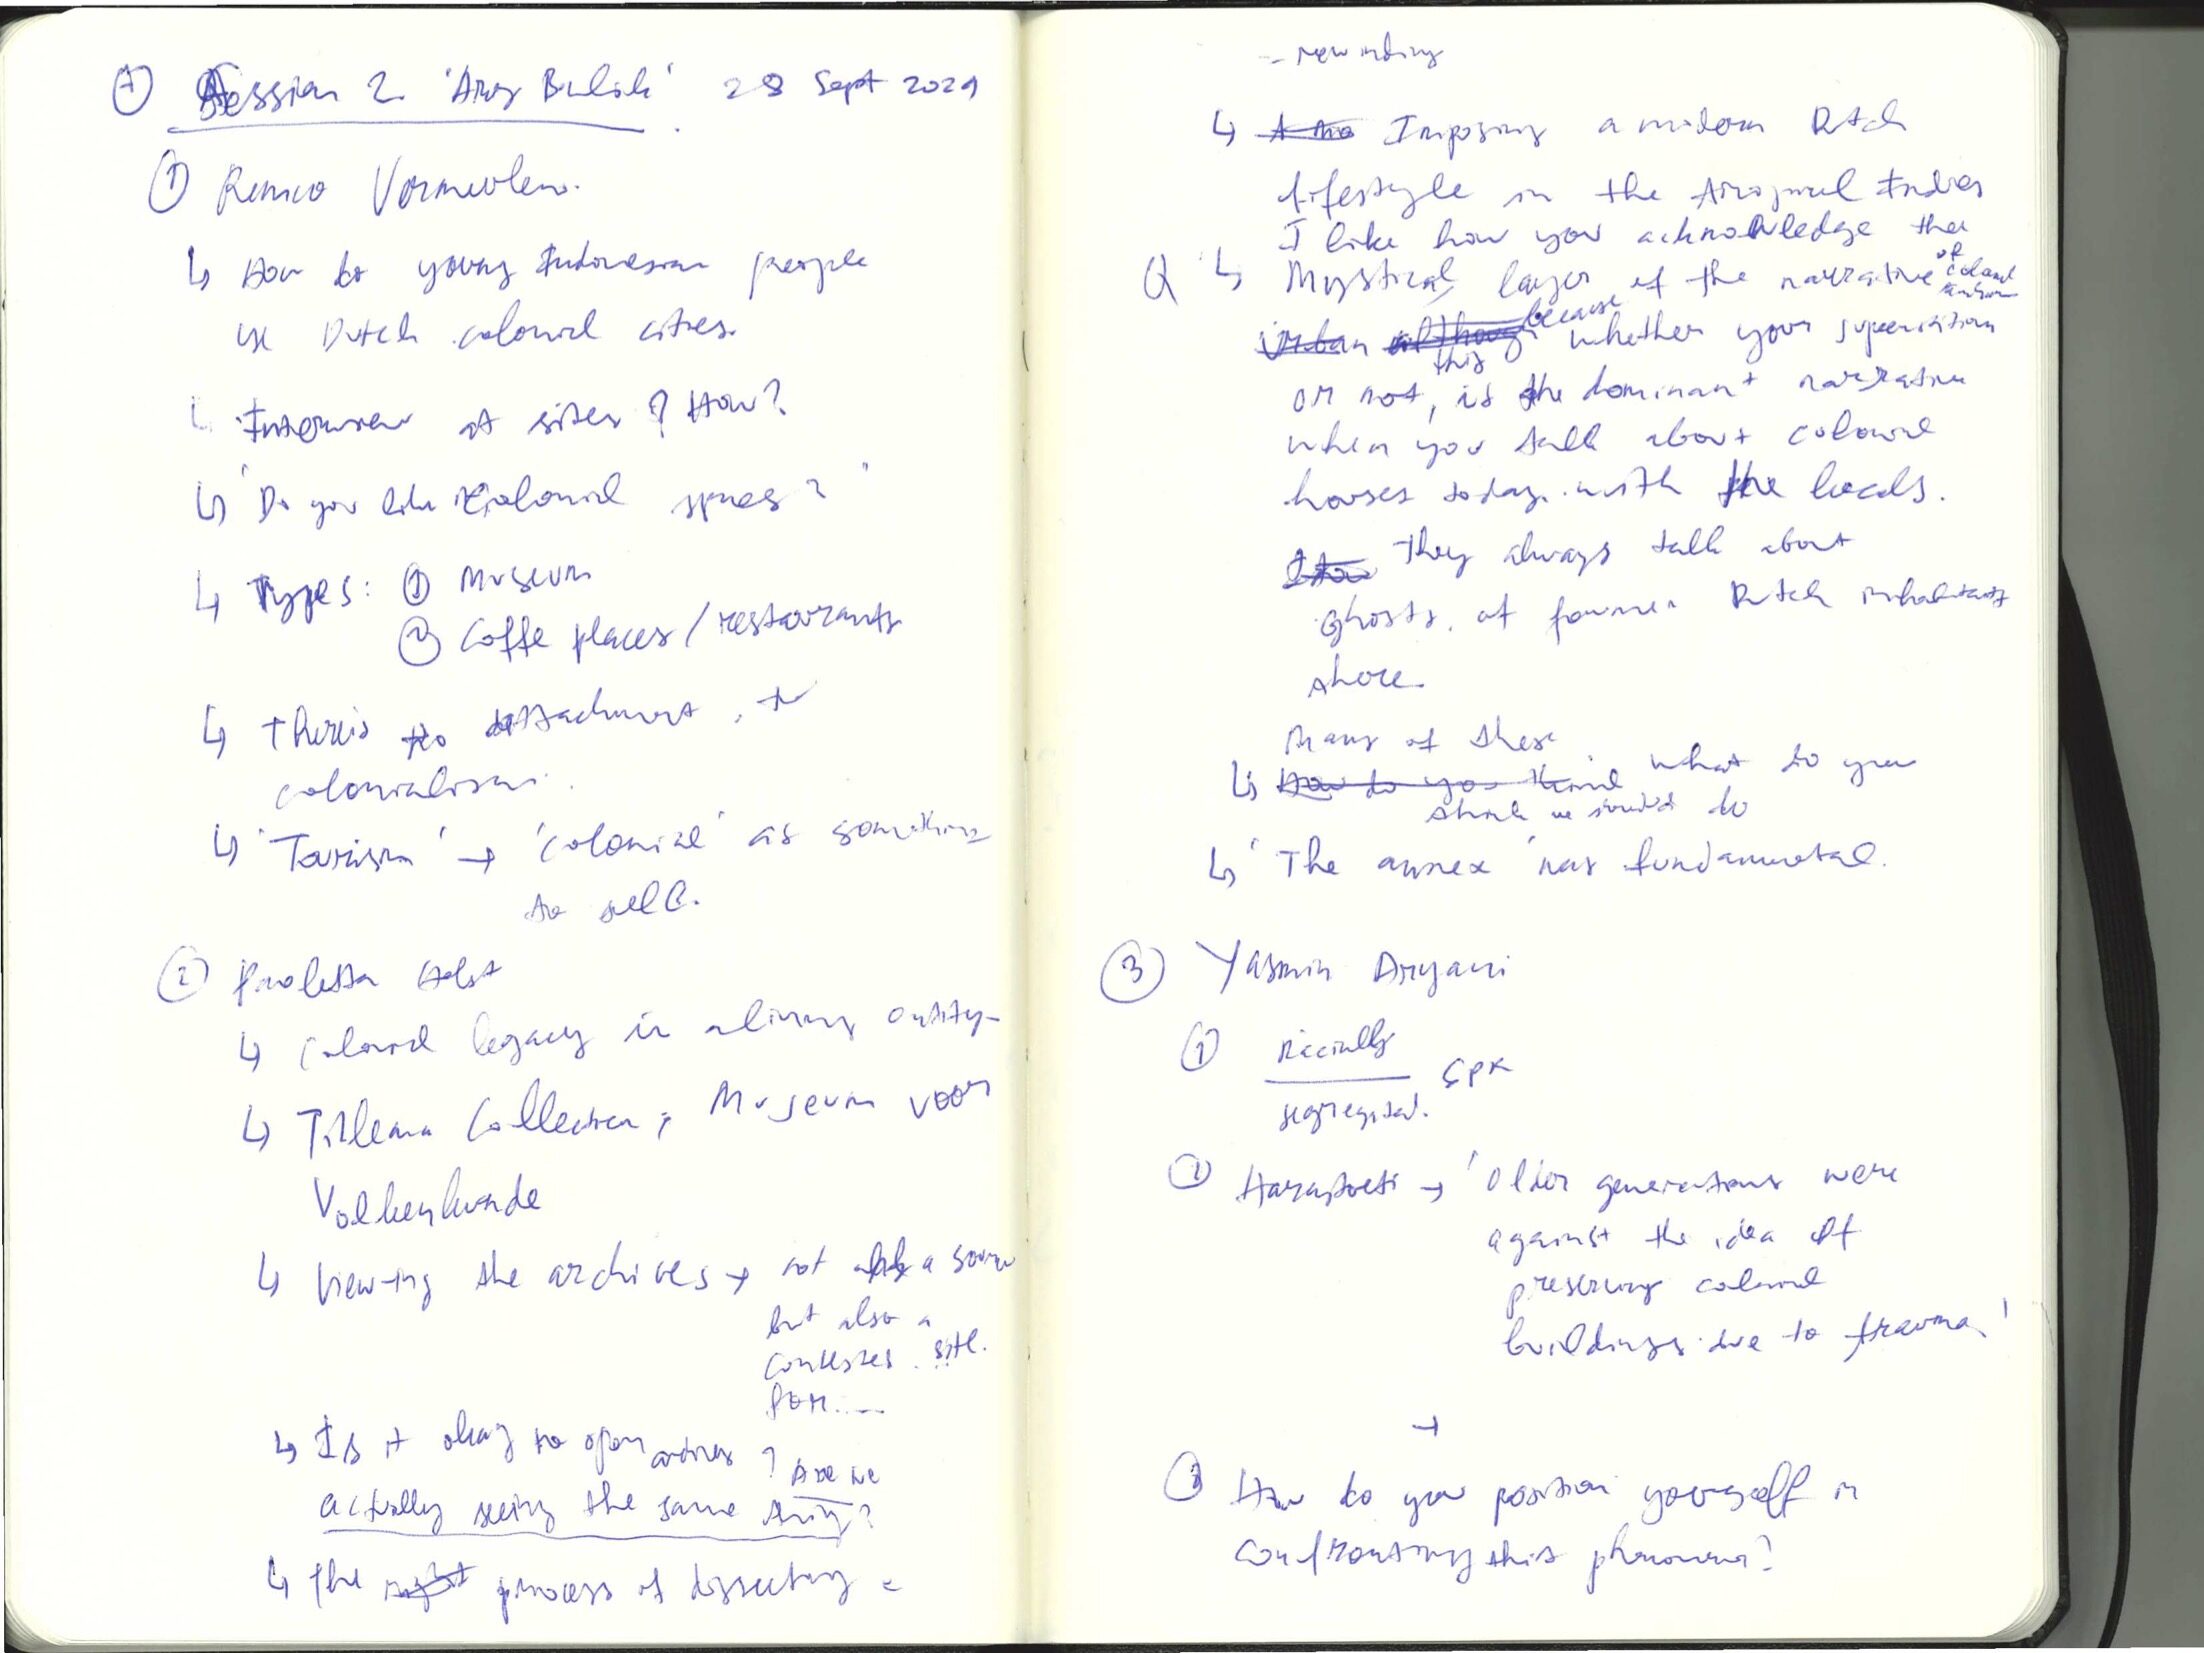 Session 2. 'Arus Balik' 28 Sept 2021
① Remco Vermeulen.
↳ How do young Indonesian people
use Dutch colonial cities.
↳ Interview at sites? How?
↳ 'Do you like colonial spaces?'
↳ Types: ① Museum
② Coffe places/restaurants
↳ There is no attachment to
colonialism.
↳ 'Tourism' → 'colonial' as something
to sell.
② Pauletta Holst
↳ Colonial legacy is a living entity
↳ Tillema Collection, Museum voor
Volkenkunde
↳ Viewing the archives → not only a source
but also a
contested site.
for....
↳ Is it okay to open archives? Are we
actually seeing the same thing?
↳ The process of dissecting -
- rewinding
↳ Imposing a modern Dutch
lifestyle in the Indies
I like how you acknowledge the
Q ↳ Mystical layer of the narrative of colonial
because whether your superstition
or not, this is the dominant narrative
when you talk about colonial
houses today with the locals.
They always talk about
ghosts of former Dutch inhabitants
there.
Many of these
↳ what do you
think we should do
↳ 'The annex' was fundamental.
③ Yasmin Aryani
① racially
segregated.
② → 'Older generations were
against the idea of
preserving colonial
buildings due to trauma!'
→
③ How do you position yourself in
confronting this phenomena?